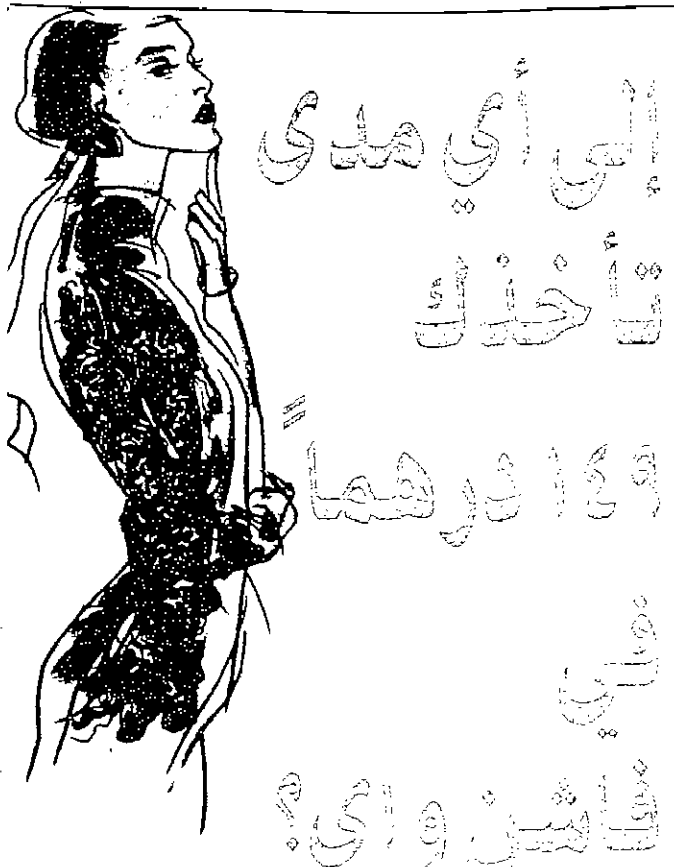 إلى أي مدى
تأخذك
١٤٩ درهماً
في
فاشن واي؟